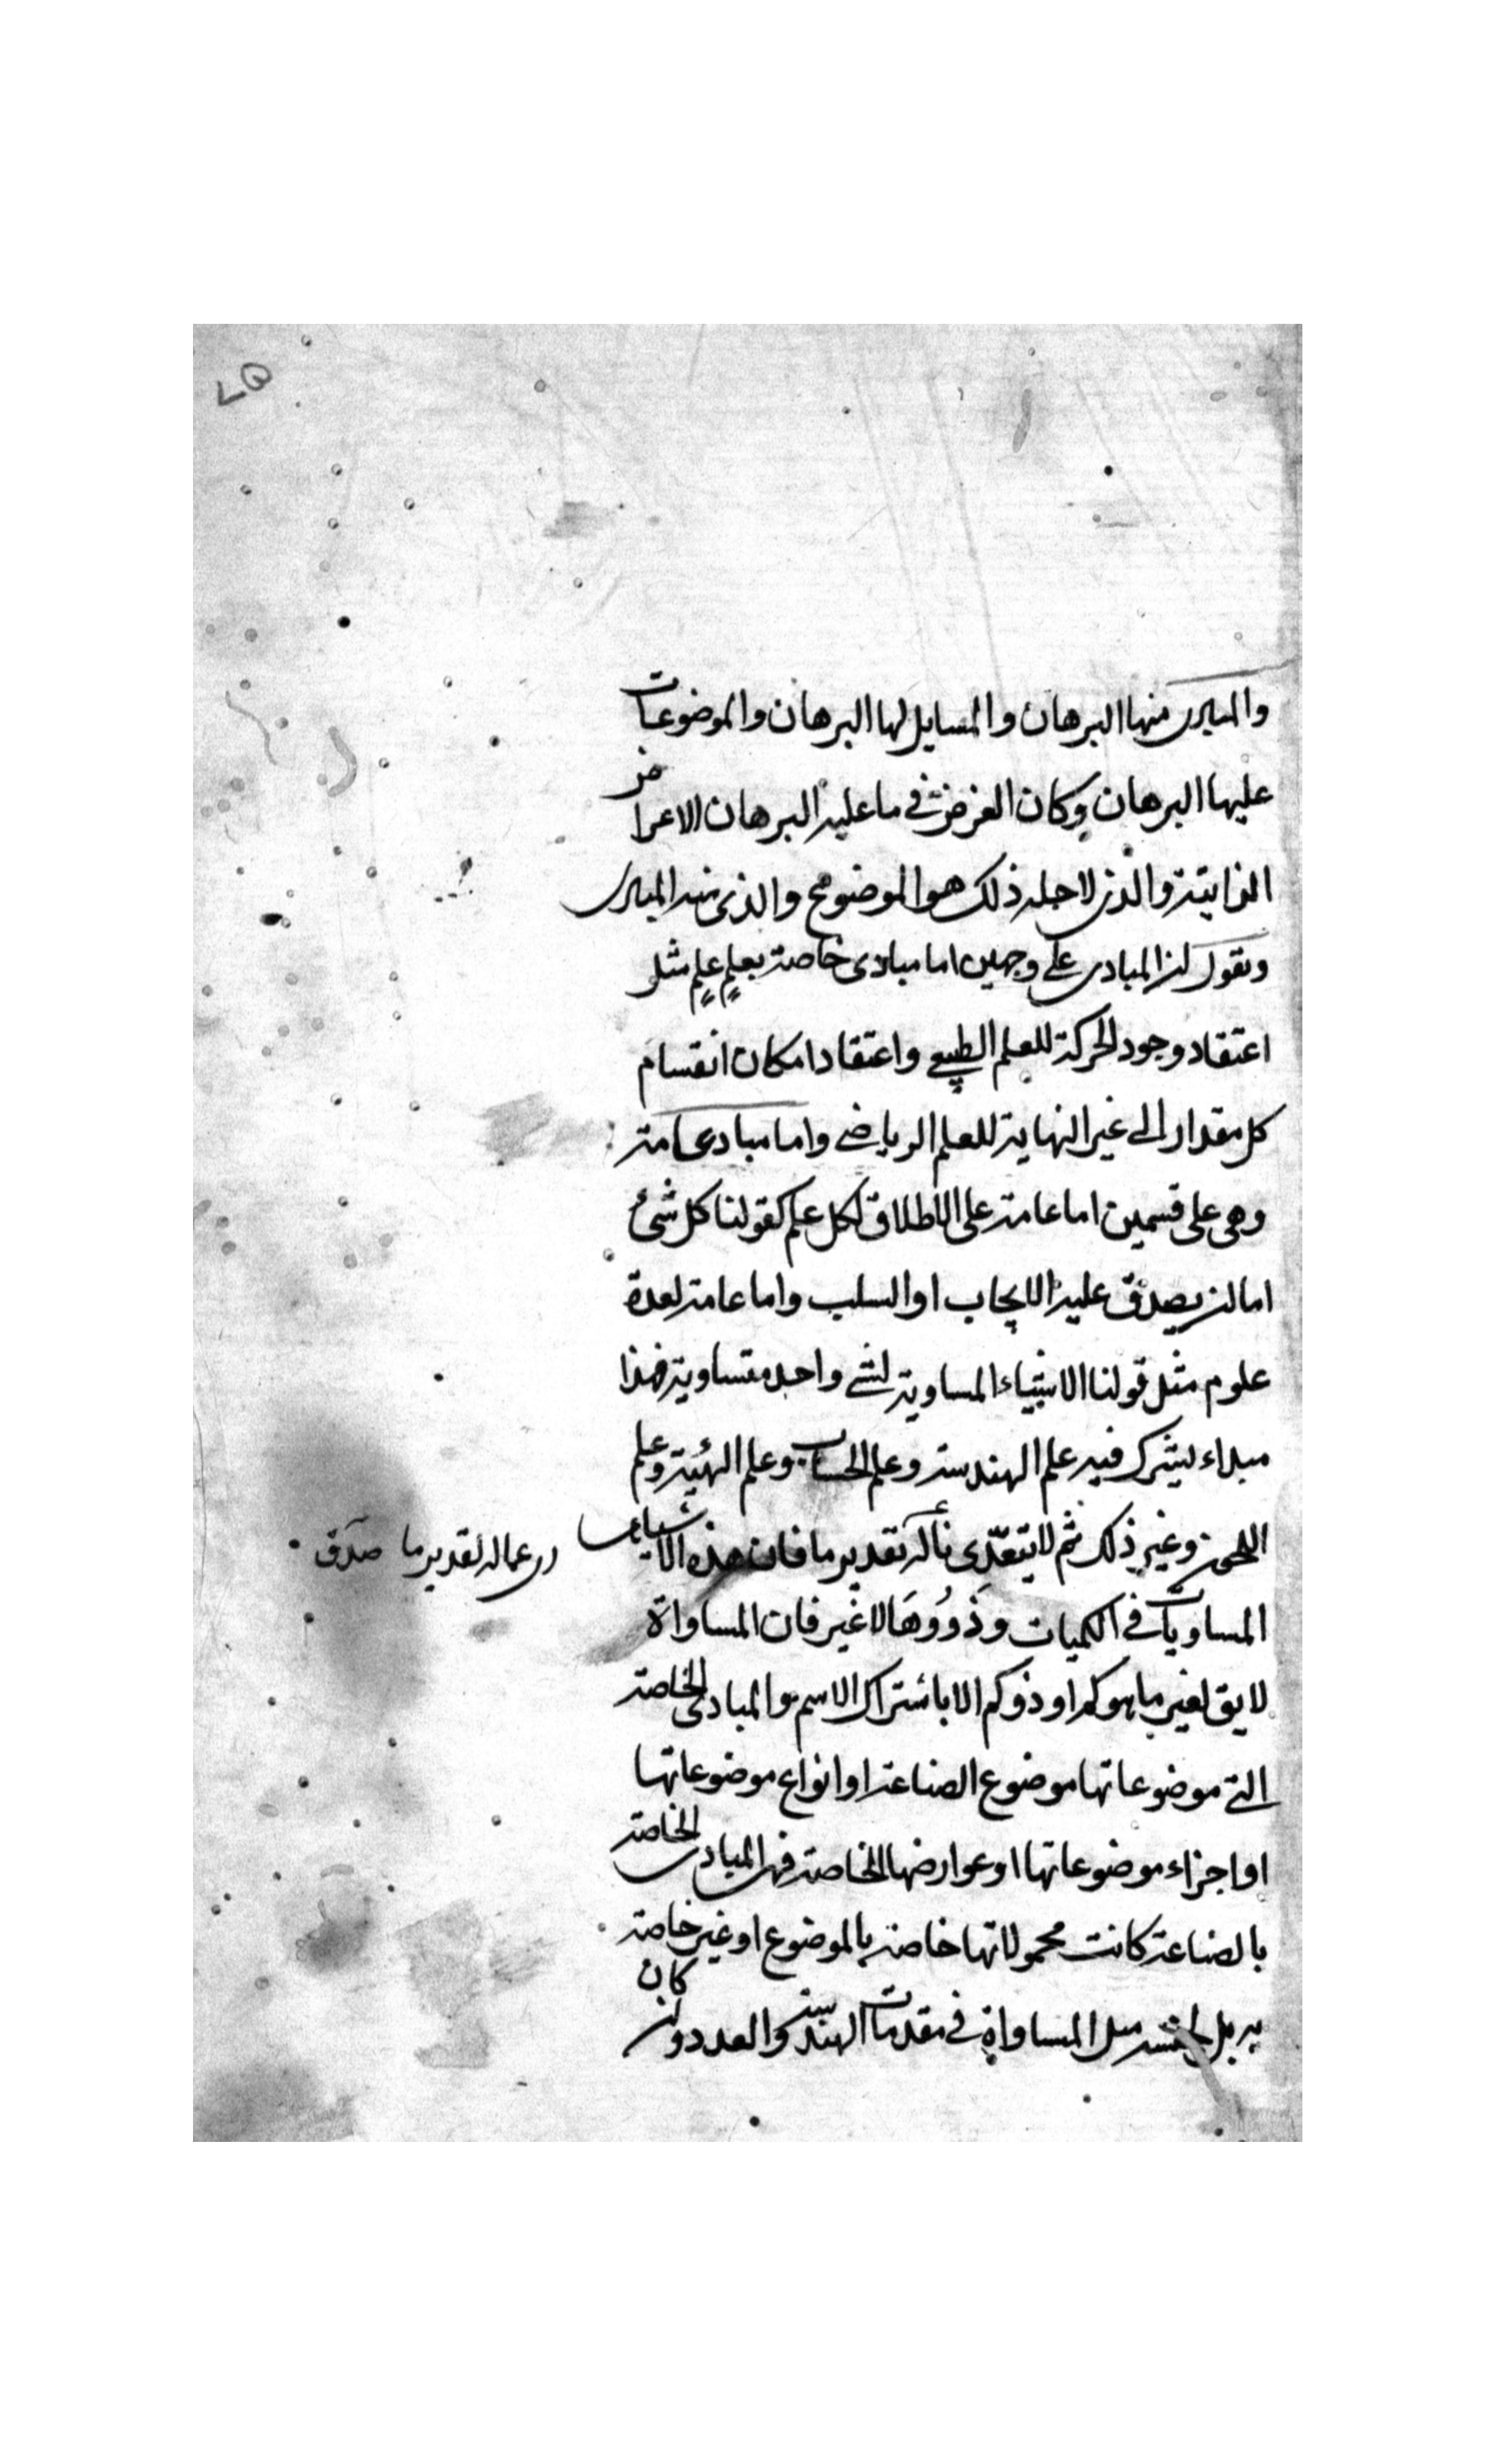 والمبادى منها البرهان والمسايل لها البرهان والموضوعات
عليها البرهان وكان الغرض فى ما عليه البرهان الاعراض
الذاتية والذى لاجله ذلك هو الموضوع والذى منه المبادى
ونقول ان المبادى على وجهين اما مبادى خاصة بعلم علم مثل
اعتقاد وجود الحركة للعلم الطبيعى واعتقاد امكان انقسام
كل مقدار الى غير النهاية للعلم الرياضى واما مبادى عامة
وهى على قسمين اما عامة على الاطلاق لكل علم كقولنا كل شئ
اما ان يصدق عليه الايجاب او السلب واما عامة لعدة
علوم مثل قولنا الاشياء المساوية لشئ واحد متساوية فهذا
مبداء يشترك فيه علم الهندسة وعلم الحساب وعلم الهيئة وعلم
اللحن وغير ذلك ثم لا يتعدى ماله تقدير ما فان هذه الاشياء
ماله تقدير ما صدق
المساويات فى الكميات وذووها لا غير فان المساواة
لا يق لغير ما هو كم او ذو كم الا باشتراك الاسم والمبادى الخاصة
التى موضوعاتها موضوع الصناعة او انواع موضوعاتها
او اجزاء موضوعاتها او عوارضها الخاصة فهى المبادى الخاصة
بالصناعة كانت محمولاتها خاصة بالموضوع او غير خاصة
به بل بجنسه مثل المساواة فى مقدمات الهندسة والعدد وان كان